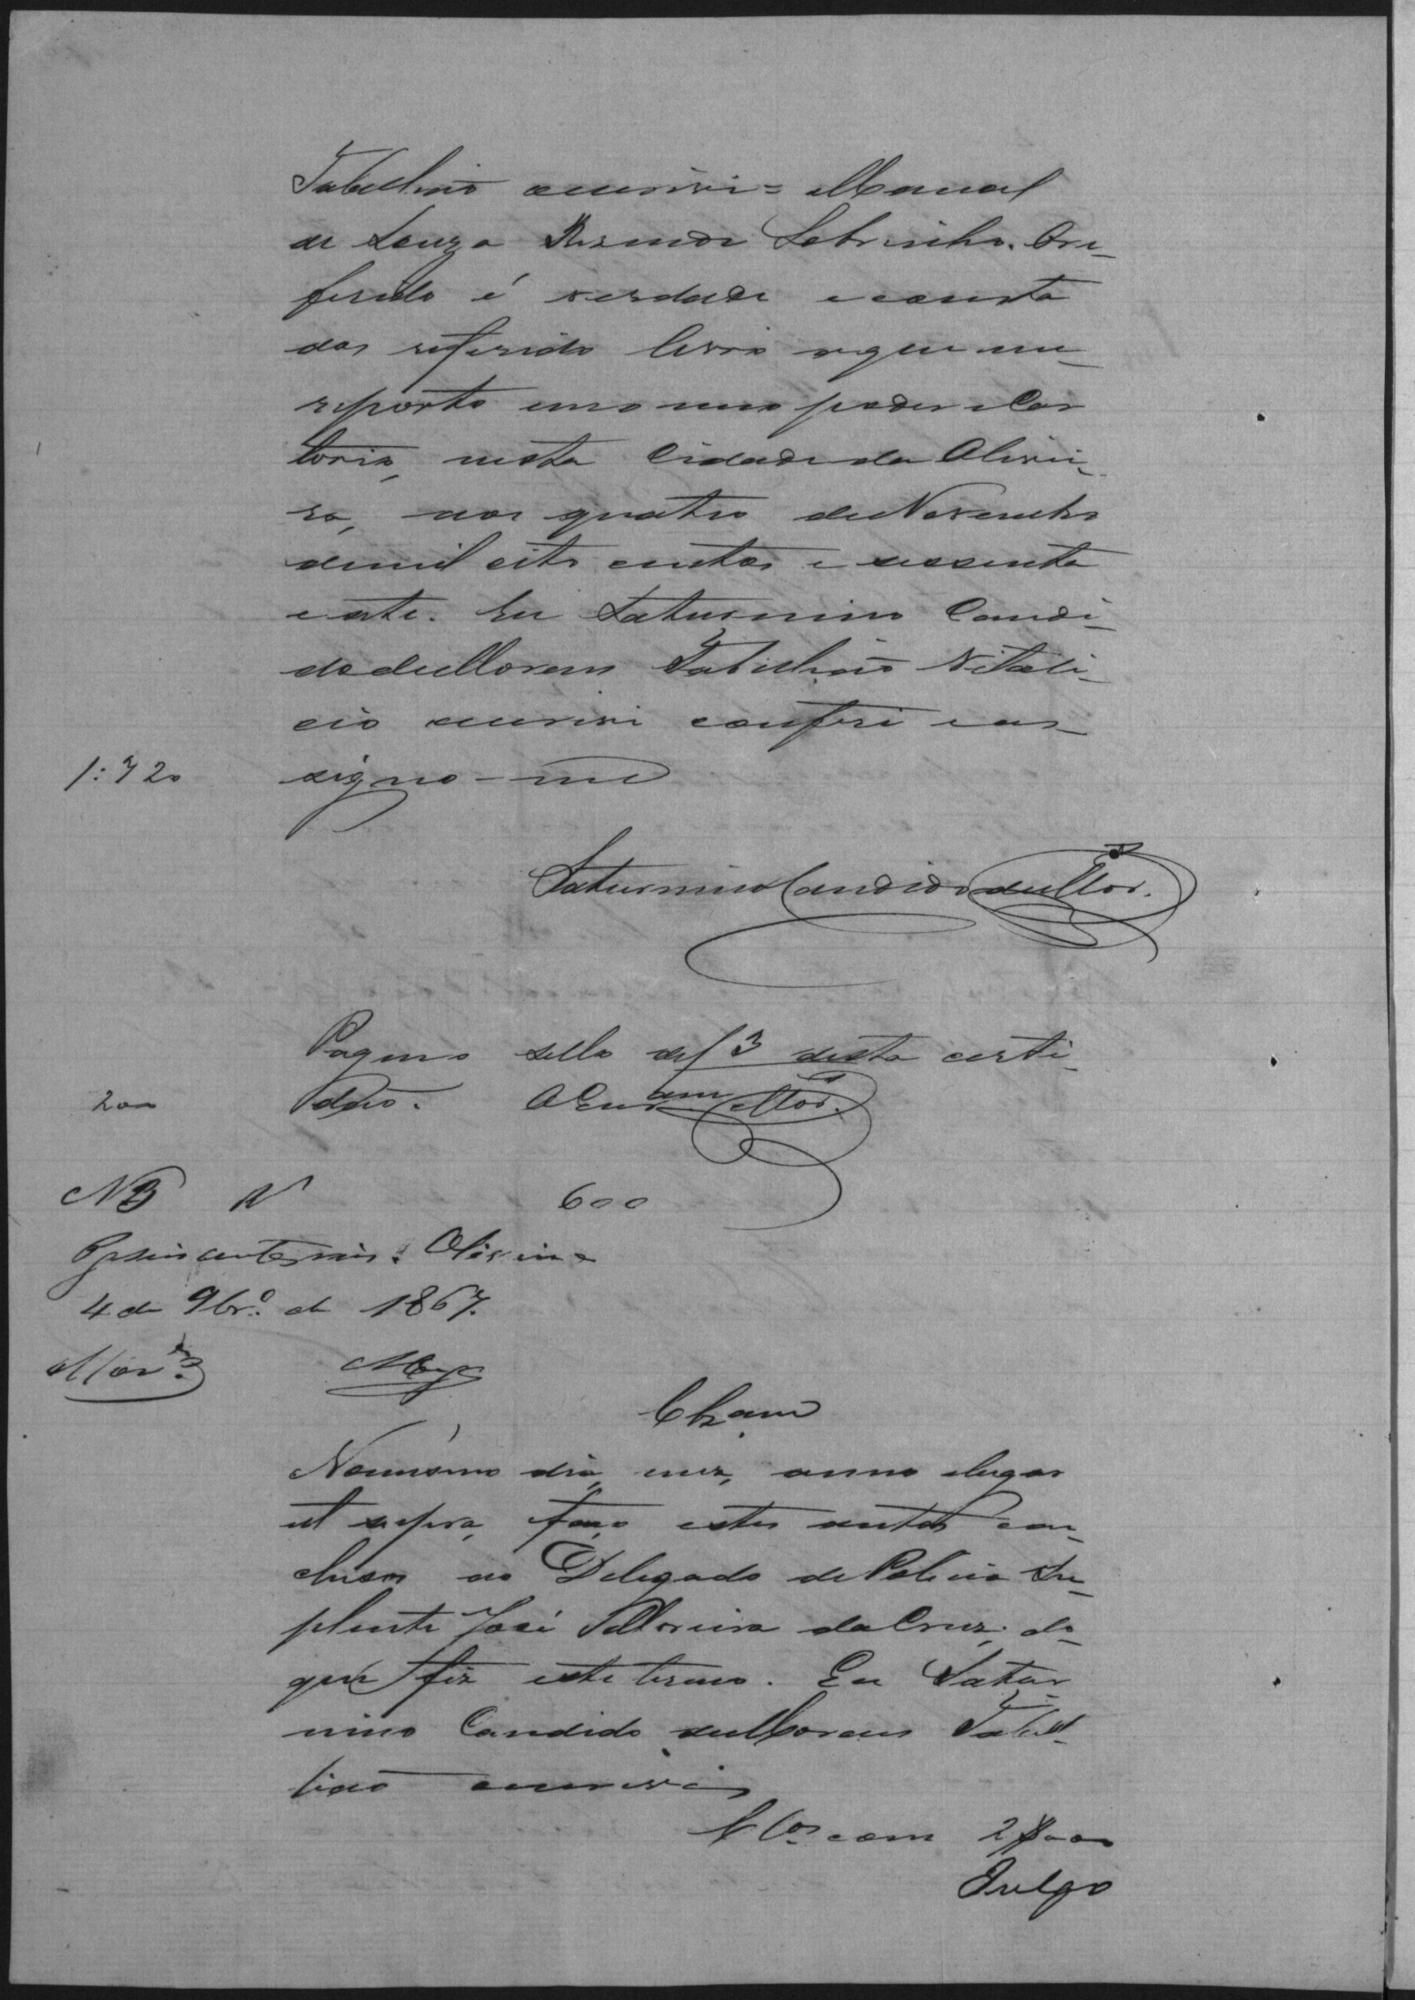 Tabellião escrivi = Manoel
de Souza Resende Sobrinho. Ore-
ferido é verdade e consta
dos referido livro aque me
reporto em o meo poder e Car
torio, nesta Cidade da Olivei-
ra, aos quatro de Novembro
de mil oito centos e sessenta
e sete. Eu Saturnino Candi-
do de Moraes Tabellião Vitali-
cio escrivi conferi e as-
1:720 signo-me
Saturnino Candido de Mor.
Pagou o sello de f 3 desta certi
200 dão.
N 3 R 600
Pg seis centos reis. Oliveira
4 de 9br.o de 1867.
Clzam
No mesmo dia, mez, anno elugar
ut supra, faço estes autos con-
clusos ao Delegado de Policia Su-
plente José Moreira da Cruz, do
que fiz este termo. Eu Satur
nino Candido de Moraes Tabel-
lião escrivi
Clos com 2$000
Julgo